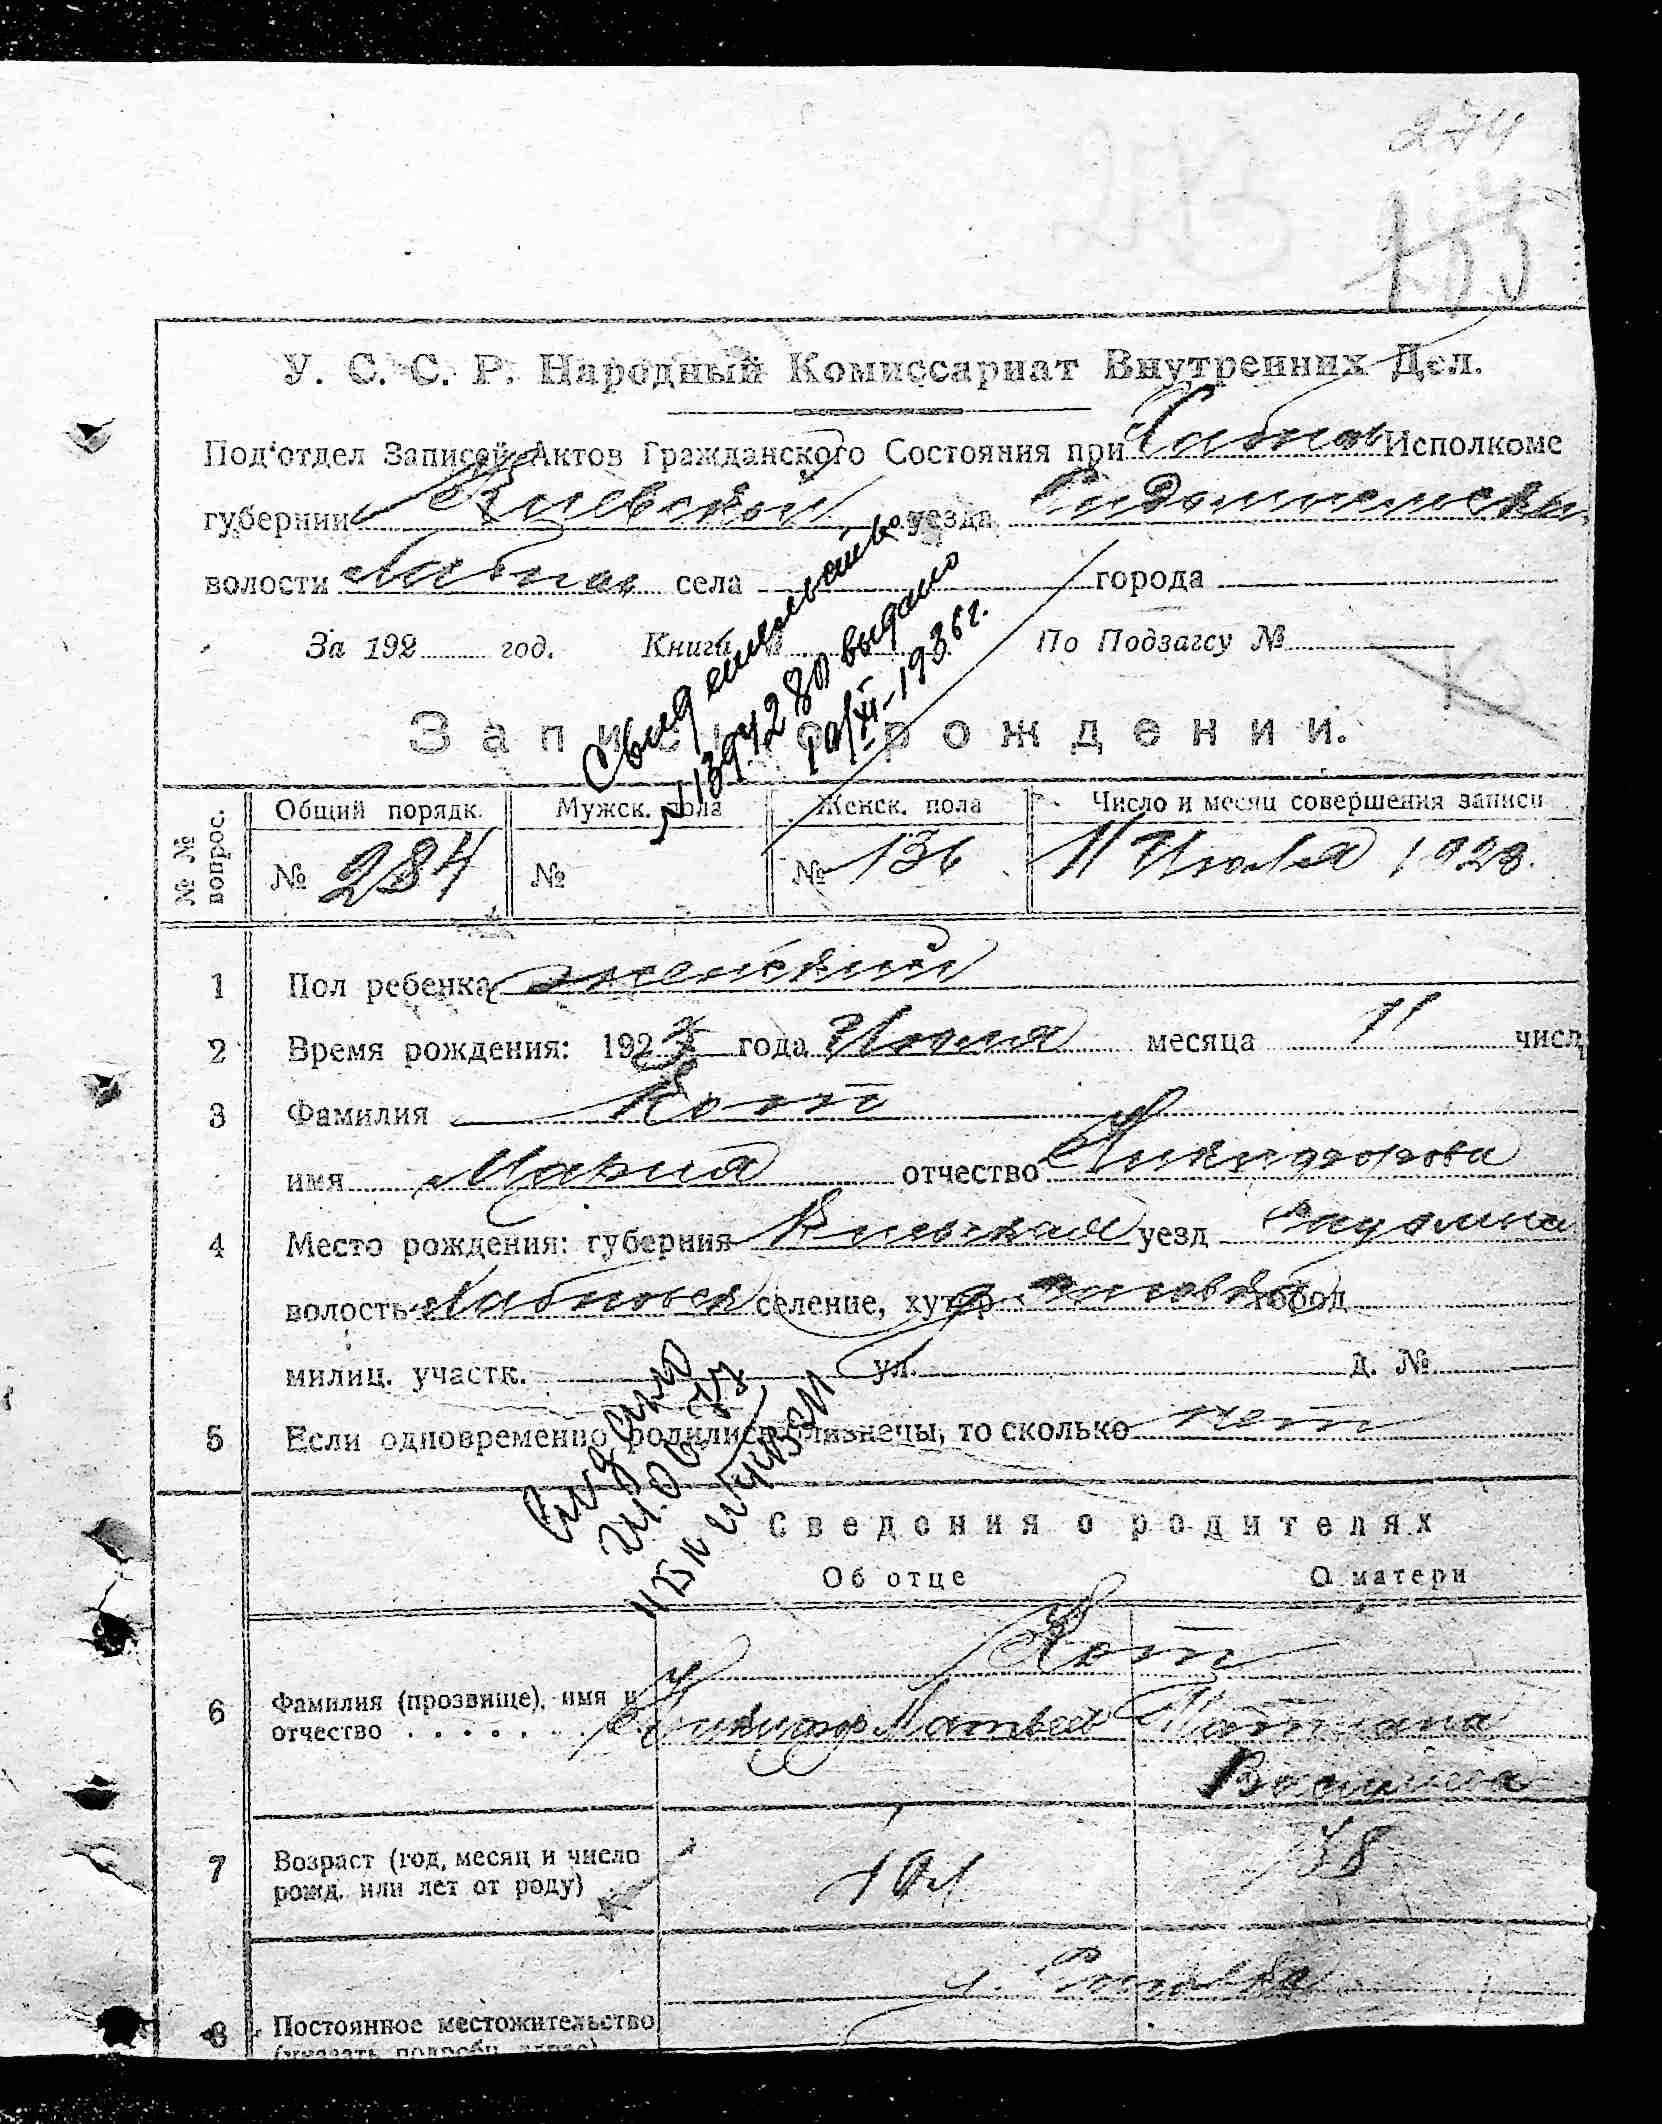 274
У. С. С. Р. Народный Комиссариат Внутренних Дел.
Под'отдел Записей Актов Гражданского Состояния при Хабнов Исполкоме
губернии Киевской уезда
волости Хабнов села города
За 192 год. Книга № По Подзагсу №
Свидетельство
N 1394280 выдано
10/XI-1936 г.
Запись о рождении.
№ № вопрос.
Общий порядк. Мужск. пола Женск. пола Число и месяц совершения записи
№ 284 № № 136 11 Июля 1923.
1 Пол ребенка женский
2 Время рождения: 1923 года Июля месяца 11 числ
3 Фамилия Кот
имя Мария отчество Никифорова
4 Место рождения: губерния Киевская уезд
волость Хабновск селение, хутор город
милиц. участк. ул. д. №
5 Если одновременно родились близнецы, то сколько нет
Сведения о родителях
Об отце О матери
Кот
6 Фамилия (прозвище), имя и
отчество Никифор Матвеев Татиана
Васильева
7 Возраст (год, месяц и число
рожд. или лет от роду) 38
8 Постоянное местожительство
(указать подробн. адрес)